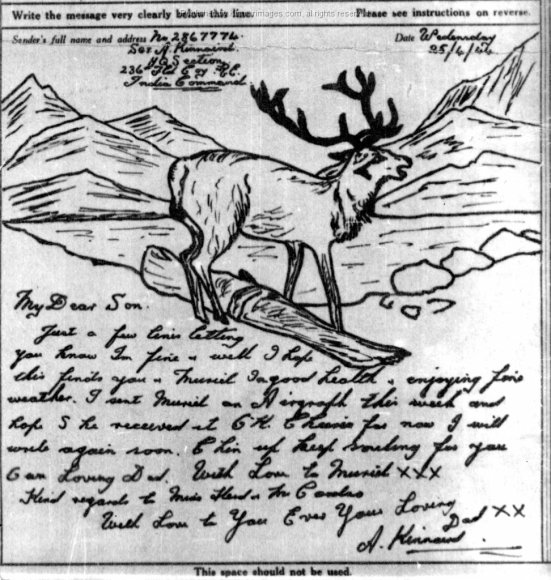 Write the message very clearly below this line.
images.com. all rights rese
Please see instructions on reverse.
Sender's full name and address No. 2867774.
Date Wednesday
Sgt A. Kinnaird.
25/4/44
H.Q Section
236 Fld Coy R.E.
India Command.
My Dear Son.
Just a few lines letting
you know Im fine & well I hope
this finds you & Muriel In good health & enjoying fine
weather. I sent Muriel an Airgraph this week and
hope She received it O.K. Cheerio for now I will
write again soon. Chin up keep smiling for you
Loving Dad. With Love to Muriel XXX
Kind regards to &
With Love to You Ever Your Loving
Dad XX
A. Kinnaird.
This space should not be used.